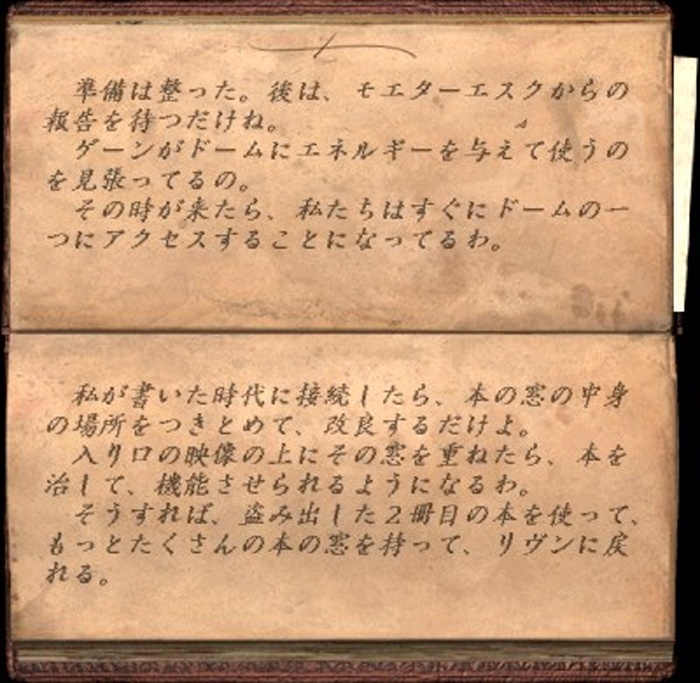 準備は整った。後は、モエターエスクからの
報告を待つだけね。
ゲーンがドームにエネルギーを与えて使うの
を見張ってるの。
その時が来たら、私たちはすぐにドームの一
つにアクセスすることになってるわ。
私が書いた時代に接続したら、本の窓の中身
の場所をつきとめて、改良するだけよ。
入り口の映像の上にその窓を重ねたら、本を
治して、機能させられるようになるわ。
そうすれば、盗み出した２冊目の本を使って、
もっとたくさんの本の窓を持って、リヴンに戻
れる。